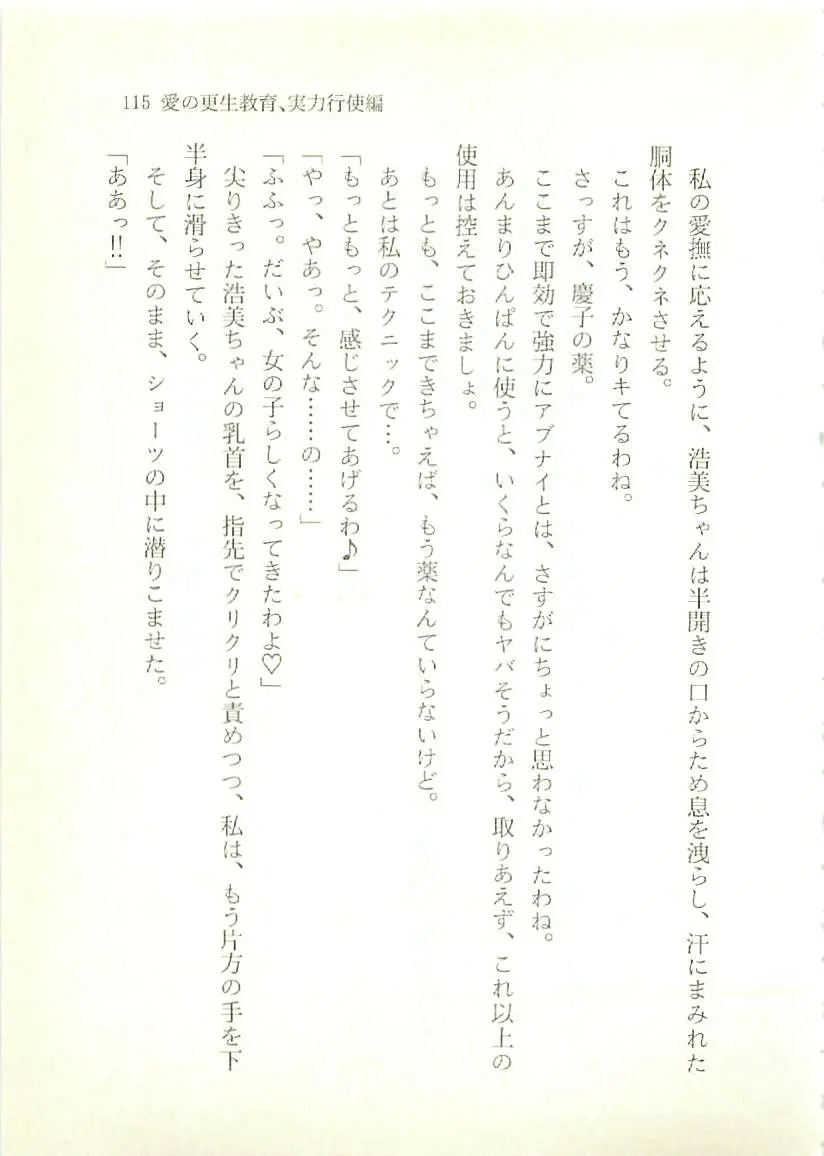 115 愛の更生教育、実力行使編
私の愛撫に応えるように、浩美ちゃんは半開きの口からため息を洩らし、汗にまみれた
胴体をクネクネさせる。
これはもう、かなりキてるわね。
さっすが、慶子の薬。
ここまで即効で強力にアブナイとは、さすがにちょっと思わなかったわね。
あんまりひんぱんに使うと、いくらなんでもヤバそうだから、取りあえず、これ以上の
使用は控えておきましょ。
もっとも、ここまできちゃえば、もう薬なんていらないけど。
あとは私のテクニックで…。
「もっともっと、感じさせてあげるわ♪」
「やっ、やあっ。そんな……の……」
「ふふっ。だいぶ、女の子らしくなってきたわよ♡」
尖りきった浩美ちゃんの乳首を、指先でクリクリと責めつつ、私は、もう片方の手を下
半身に滑らせていく。
そして、そのまま、ショーツの中に潜りこませた。
「ああっ!!」